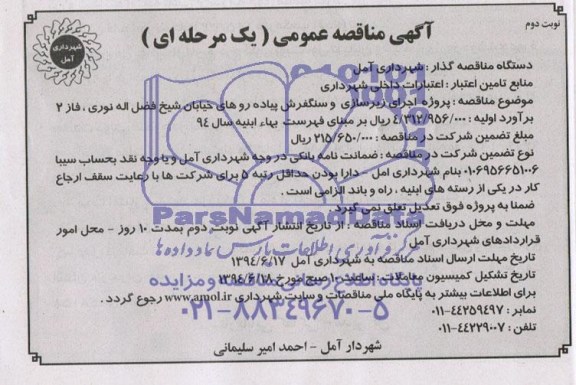 نوبت دوم
شهرداری
آمل
آگهی مناقصه عمومی ( یک مرحله ای )
دستگاه مناقصه گذار : شهرداری آمل
منابع تامین اعتبار : اعتبارات داخلی شهرداری
موضوع مناقصه : پروژه اجرای زیرسازی و سنگفرش پیاده رو های خیابان شیخ فضل اله نوری ، فاز ۲
برآورد اولیه : ۴/۳۱۲/۹۵۶/۰۰۰ ریال بر مبنای فهرست بهاء ابنیه سال ۹۴
مبلغ تضمین شرکت در مناقصه : ۲۱۵/۶۵۰/۰۰۰ ریال
نوع تضمین شرکت در مناقصه : ضمانت نامه بانکی در وجه شهرداری آمل و یا وجه نقد بحساب سیبا
۰۱۰۶۹۵۶۶۵۱۰۰۶ بنام شهرداری آمل - دارا بودن حداقل رتبه ۵ برای شرکت ها با رعایت سقف ارجاع
کار در یکی از رسته های ابنیه ، راه و باند الزامی است .
ضمنا به پروژه فوق تعدیل تعلق نمی گیرد .
مهلت و محل دریافت اسناد مناقصه : از تاریخ انتشار آگهی نوبت دوم بمدت ۱۰ روز - محل امور
قراردادهای شهرداری آمل
تاریخ مهلت ارسال اسناد مناقصه به شهرداری آمل ۱۳۹۴/۶/۱۷
تاریخ تشکیل کمیسیون معاملات : ساعت ۱۰ صبح مورخ ۱۳۹۴/۶/۱۸
برای اطلاعات بیشتر به پایگاه ملی مناقصات و سایت شهرداری www.amol.ir رجوع گردد .
نمابر : ۴۴۲۵۹۴۹۷-۰۱۱
تلفن : ۴۴۲۲۹۰۰۷-۰۱۱
شهردار آمل - احمد امیر سلیمانی
ParsNamadData
گردآوری اطلاعات پارس نماد داده ها
پایگاه اطلاع رسانی مناقصه و مزایده
۰۲۱-۸۸۳۴۹۶۷۰-۵